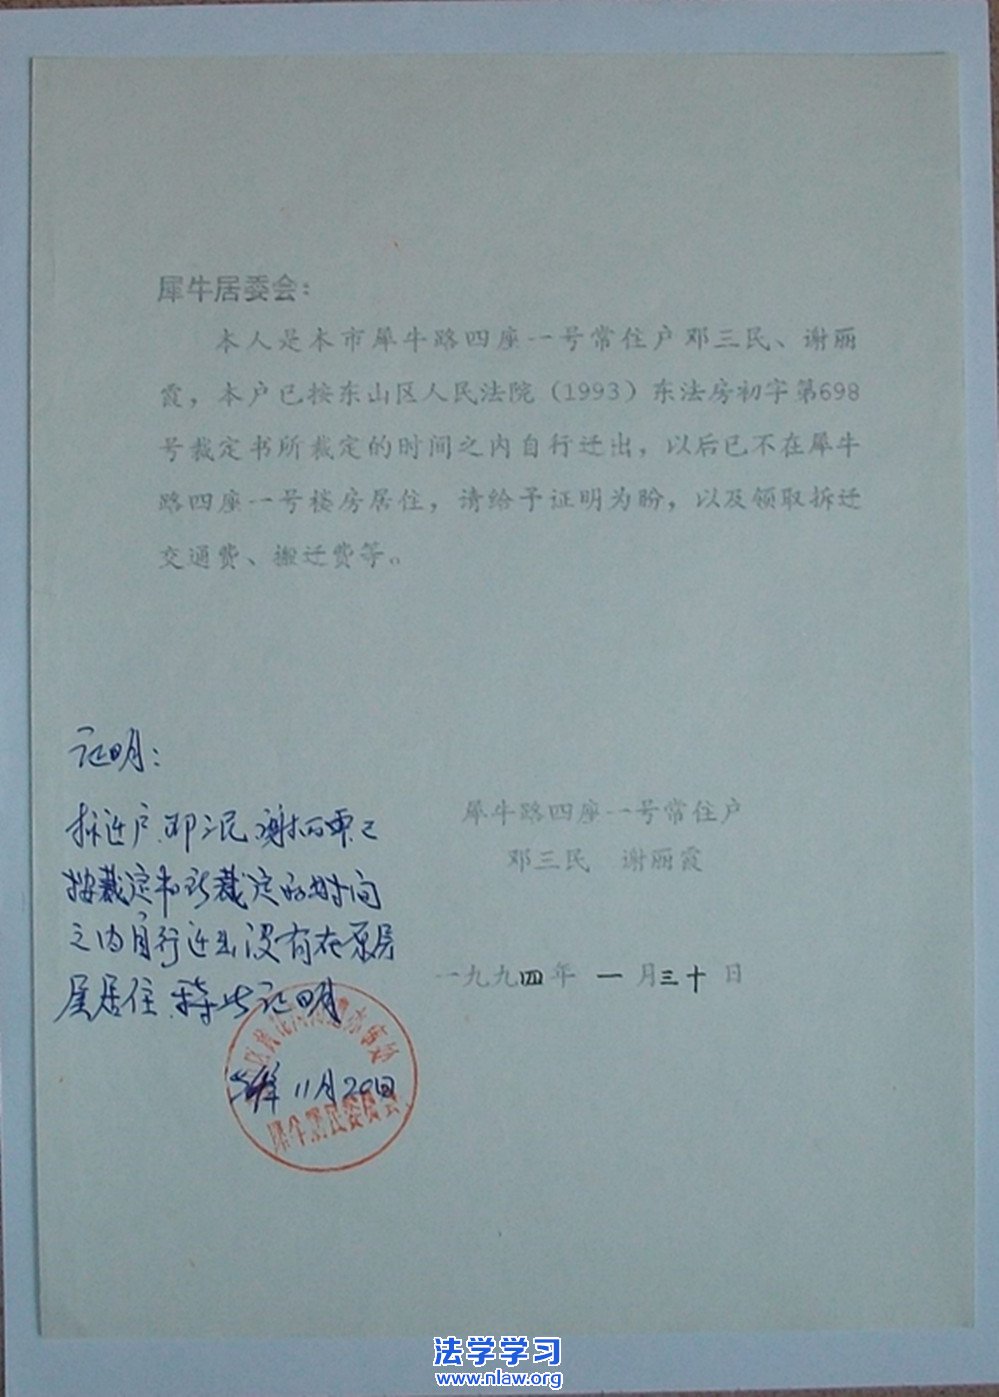 犀牛居委会：
本人是本市犀牛路四座一号常住户邓三民、谢丽
霞，本户已按东山区人民法院（1993）东法房初字第698
号裁定书所裁定的时间之内自行迁出，以后已不在犀牛
路四座一号楼房居住，请给予证明为盼，以及领取拆迁
交通费、搬迁费等。
犀牛路四座一号常住户
邓三民 谢丽霞
一九九四年 一 月三十 日
证明：
拆迁户邓三民谢丽霞已
按裁定书所裁定的时间
之内自行迁出没有在原房
屋居住.特此证明
11月20日
犀牛居民委员会
法学学习
www.nlaw.org